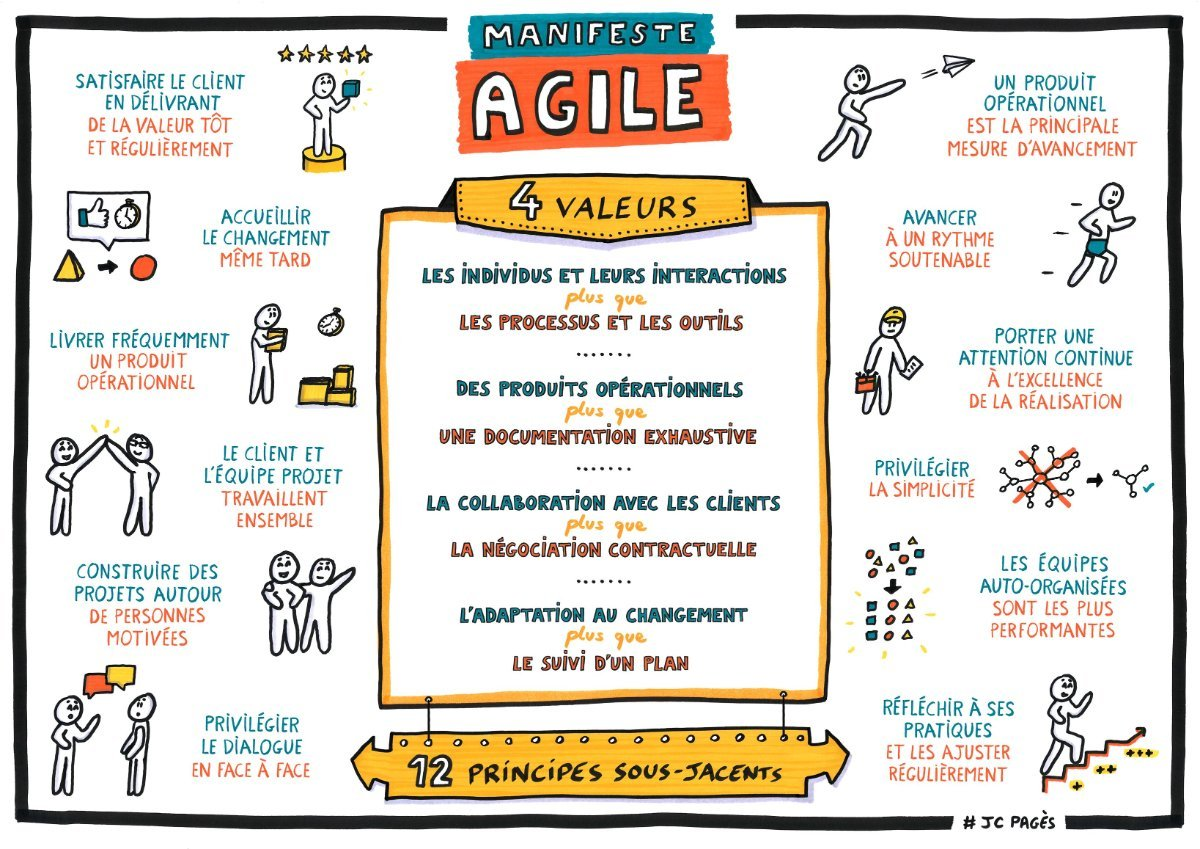 MANIFESTE
AGILE
SATISFAIRE LE CLIENT
EN DÉLIVRANT
DE LA VALEUR TÔT
ET RÉGULIÈREMENT
ACCUEILLIR
LE CHANGEMENT
MÊME TARD
LIVRER FRÉQUEMMENT
UN PRODUIT
OPÉRATIONNEL
LE CLIENT ET
L'ÉQUIPE PROJET
TRAVAILLENT
ENSEMBLE
CONSTRUIRE DES
PROJETS AUTOUR
DE PERSONNES
MOTIVÉES
PRIVILÉGIER
LE DIALOGUE
EN FACE À FACE
4 VALEURS
LES INDIVIDUS ET LEURS INTERACTIONS
plus que
LES PROCESSUS ET LES OUTILS
.......
DES PRODUITS OPÉRATIONNELS
plus que
UNE DOCUMENTATION EXHAUSTIVE
.......
LA COLLABORATION AVEC LES CLIENTS
plus que
LA NÉGOCIATION CONTRACTUELLE
.......
L'ADAPTATION AU CHANGEMENT
plus que
LE SUIVI D'UN PLAN
12 PRINCIPES SOUS-JACENTS
UN PRODUIT
OPÉRATIONNEL
EST LA PRINCIPALE
MESURE D'AVANCEMENT
AVANCER
À UN RYTHME
SOUTENABLE
PORTER UNE
ATTENTION CONTINUE
À L'EXCELLENCE
DE LA RÉALISATION
PRIVILÉGIER
LA SIMPLICITÉ
LES ÉQUIPES
AUTO-ORGANISÉES
SONT LES PLUS
PERFORMANTES
RÉFLÉCHIR À SES
PRATIQUES
ET LES AJUSTER
RÉGULIÈREMENT
+++
++
+
# JC PAGÈS